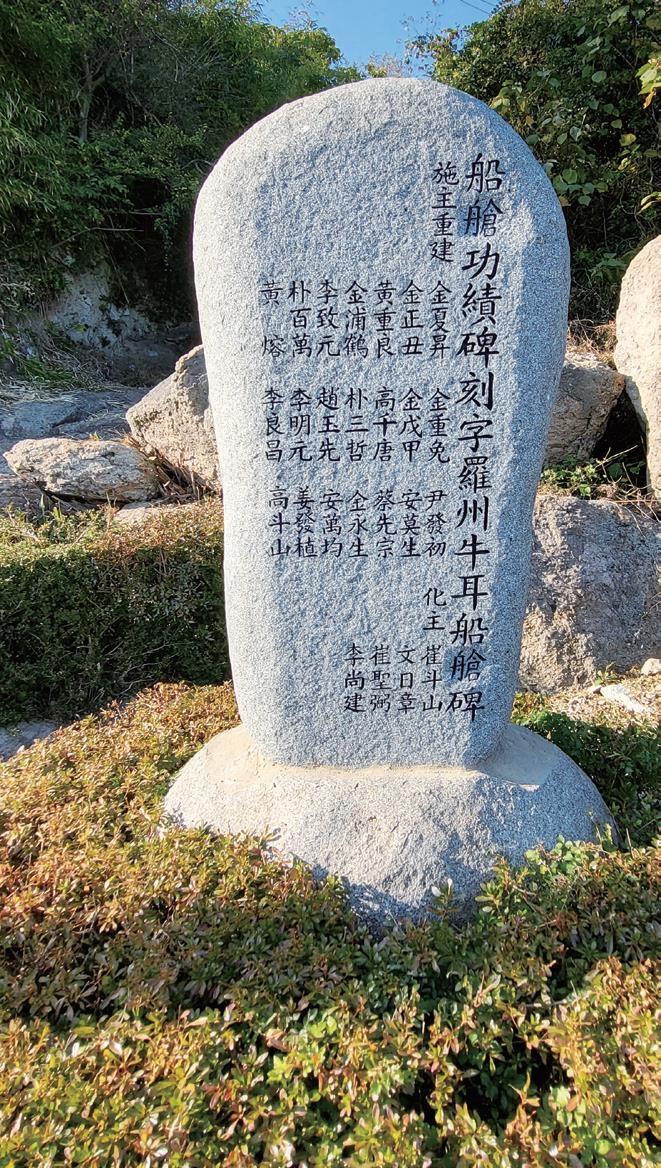 船艙功績碑刻字羅州牛耳船艙碑
施主重建 金夏昇 金重免 尹發初 化主 崔斗山
金正丑 金戊甲 安莫生 文日章
黃重良 高千唐 蔡先宗 崔聖弼
金浦鶴 朴三哲 金永生 李尚建
李致元 趙玉先 安萬均
朴百萬 李明元 姜發植
黃熔 李良昌 高斗山